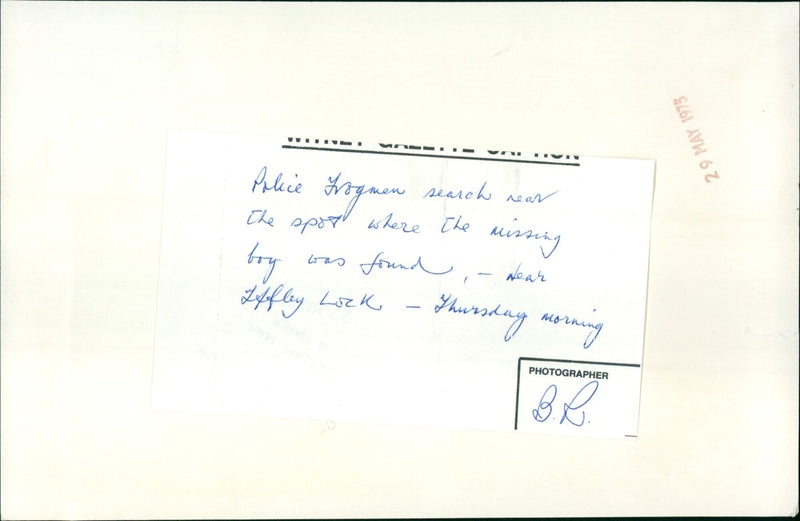 WITNEY GAZETTE CAPTION
Police Frogmen search near
the spot where the missing
boy was found, - near
Iffley Lock - Thursday morning
PHOTOGRAPHER
B.R.
29 MAY 1975